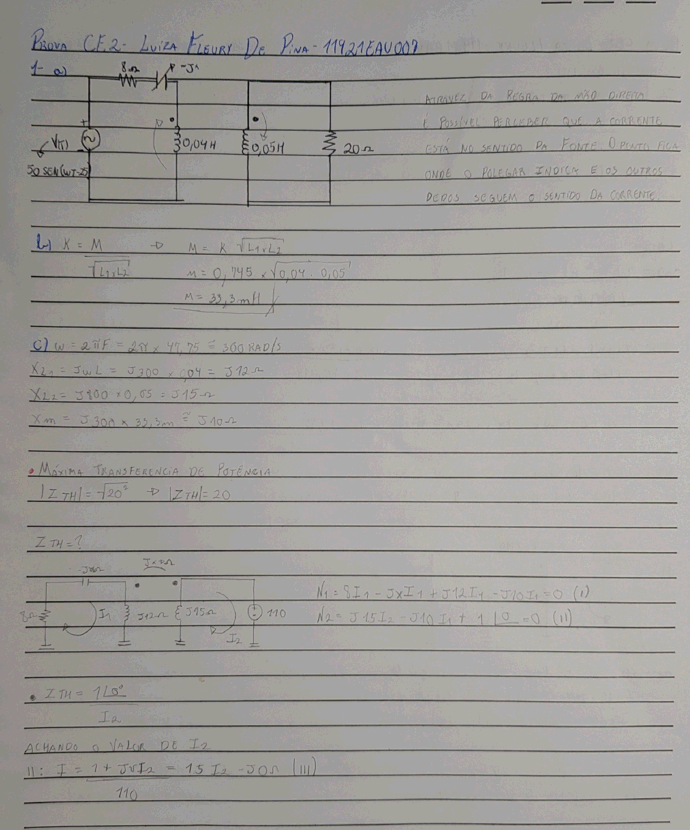 PROVA C.E.2- LUIZA FLEURY DE PINA - 11921EAU007
1- a)
8Ω
-JX
+
V(T)
50 SEN(WT-25)
0,04H
0,05H
20Ω
ATRAVÉZ DA REGRA DA MÃO DIREITA
É POSSÍVEL PERCEBER QUE A CORRENTE
ESTÁ NO SENTIDO DA FONTE O PONTO FICA
ONDE O POLEGAR INDICA E OS OUTROS
DEDOS SEGUEM O SENTIDO DA CORRENTE
b) K = M → M = K √L1×L2
√L1×L2 M = 0,745 × √0,04 . 0,05
M = 33,3mH
c) W = 2πF = 2π × 47,75 = 300 RAD/S
XL1 = JWL = J300 × 0,04 = J12Ω
XL2 = J300 × 0,05 = J15Ω
Xm = J300 × 33,3m = J10Ω
• MÁXIMA TRANSFERENCIA DE POTÊNCIA
|ZTH| = √20² → |ZTH| = 20
ZTH = ?
8Ω
I1
J12Ω
J15Ω
I2
1∠0
N1 = 8I1 - JXI1 + J12I1 - J10I1 = 0 (I)
N2 = J15I2 - J10I1 + 1∠0 = 0 (II)
• ZTH = 1∠0°
I2
ACHANDO O VALOR DE I2
110